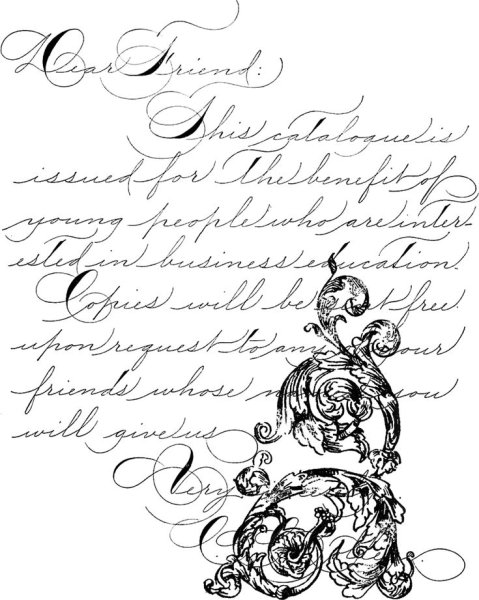 Dear Friend:
This catalogue is
issued for the benefit of
young people who are inter-
ested in business education.
Copies will be free
upon request to
friends whose you
will give us
Very